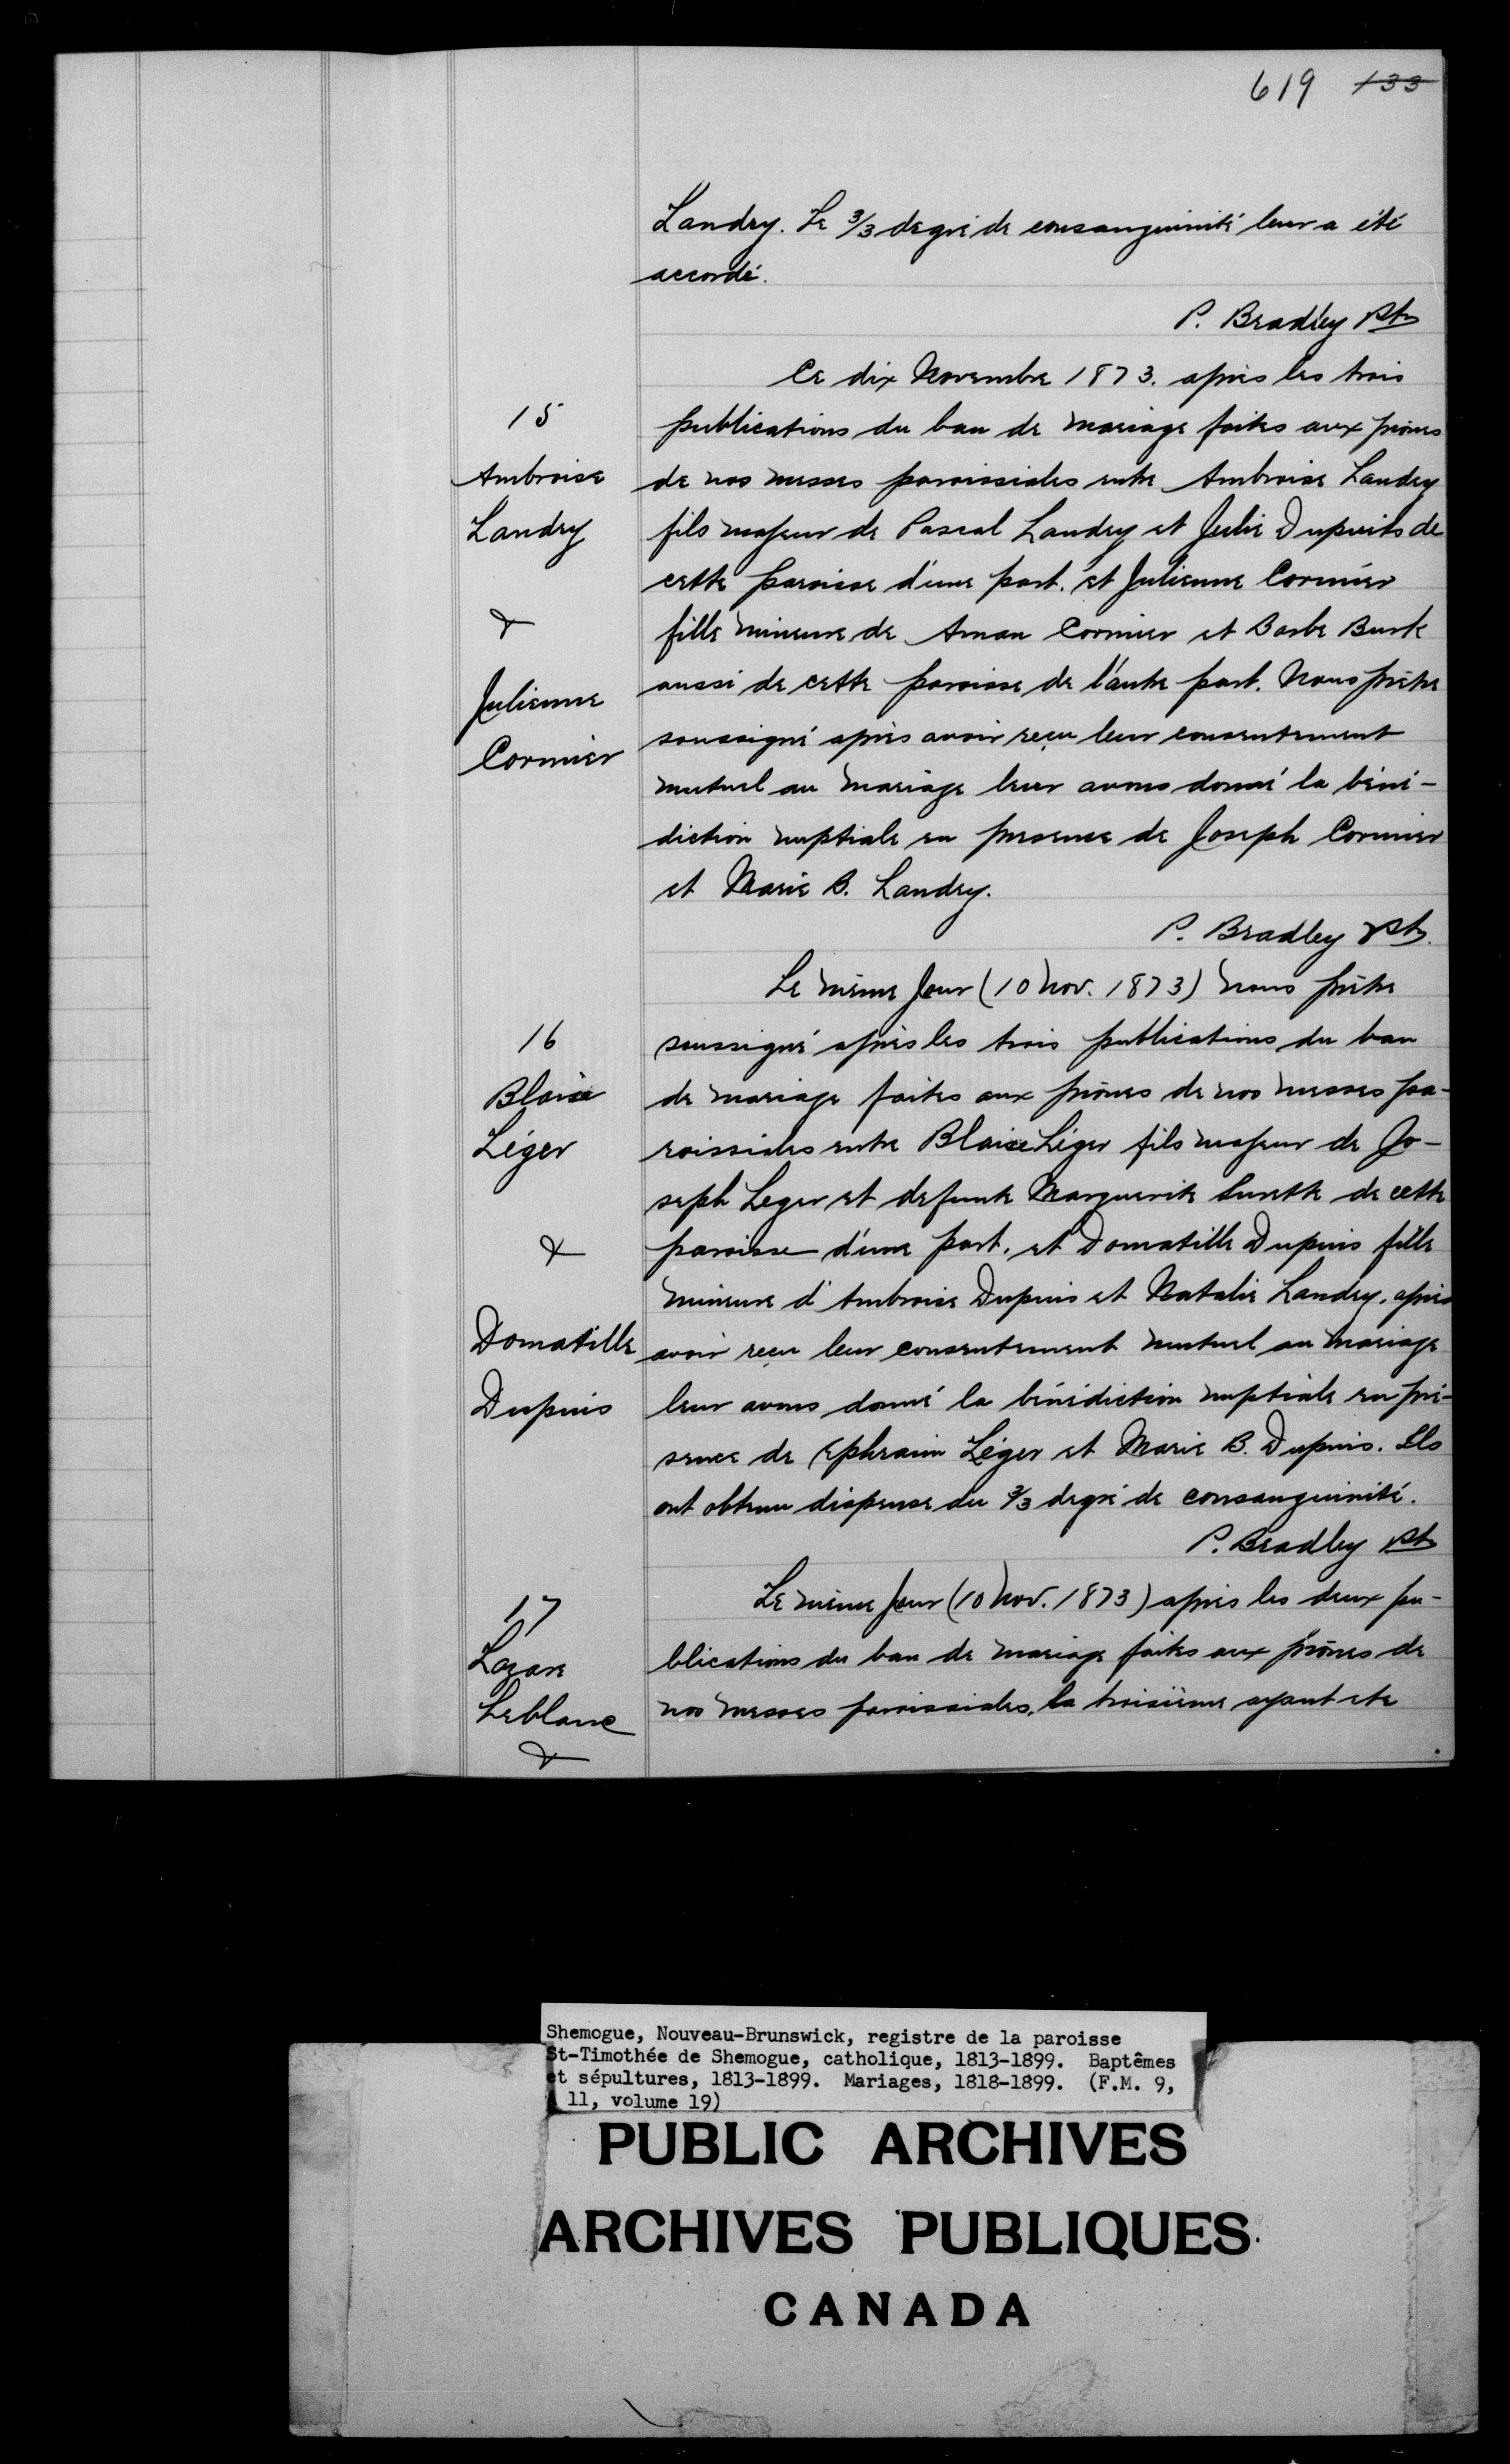 619 133
Landry. Le 3/3 degré de consanguinité leur a été
accordé.
P. Bradley Ptr
Ce dix Novembre 1873. après les trois
15
publications du ban de mariage faites aux prônes
Ambroise
de nos messes paroissiales entre Ambroise Landry
Landry
fils majeur de Pascal Landry et Julie Dupuits de
cette paroisse d'une part. et Julienne Cormier
&
fille mineure de Aman Cormier et Barbe Burk
Julienne
aussi de cette paroisse de l'autre part. Nous prêtre
Cormier
soussigné après avoir reçu leur consentement
mutuel au mariage leur avons donné la béné-
diction nuptiale en presence de Joseph Cormier
et Marie B. Landry.
P. Bradley Ptr.
Le même Jour (10 Nov. 1873) Nous prêtre
16
soussigné après les trois publications du ban
Blaise
de mariage faites aux prônes de nos messes pa-
Léger
roissiales entre Blaise Léger fils majeur de Jo-
seph Leger et defunte Marguerite Surette de cette
&
paroisse d'une part. et Domatille Dupuis fille
mineure d'Ambroise Dupuis et Natalie Landry, après
Domatille
avoir reçu leur consentement mutuel au mariage
Dupuis
leur avons donné la bénédiction nuptiale en pré-
sence de Ephraim Léger et Marie B. Dupuis. Ils
ont obtenu dispense du 3/3 degré de consanguinité.
P. Bradley Ptr
17
Le même Jour (10 Nov. 1873) après les deux pu-
Lazare
blications du ban de mariage faites aux prônes de
Leblanc
nos messes paroissiales, la troisième ayant ete
&
Shemogue, Nouveau-Brunswick, registre de la paroisse
St-Timothée de Shemogue, catholique, 1813-1899. Baptêmes
et sépultures, 1813-1899. Mariages, 1818-1899. (F.M. 9,
11, volume 19)
PUBLIC ARCHIVES
ARCHIVES PUBLIQUES
CANADA